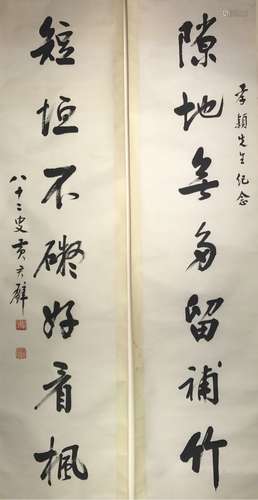 隙地無多留補竹
孝穎先生紀念
短垣不礙好看楓
八十二叟黃君璧